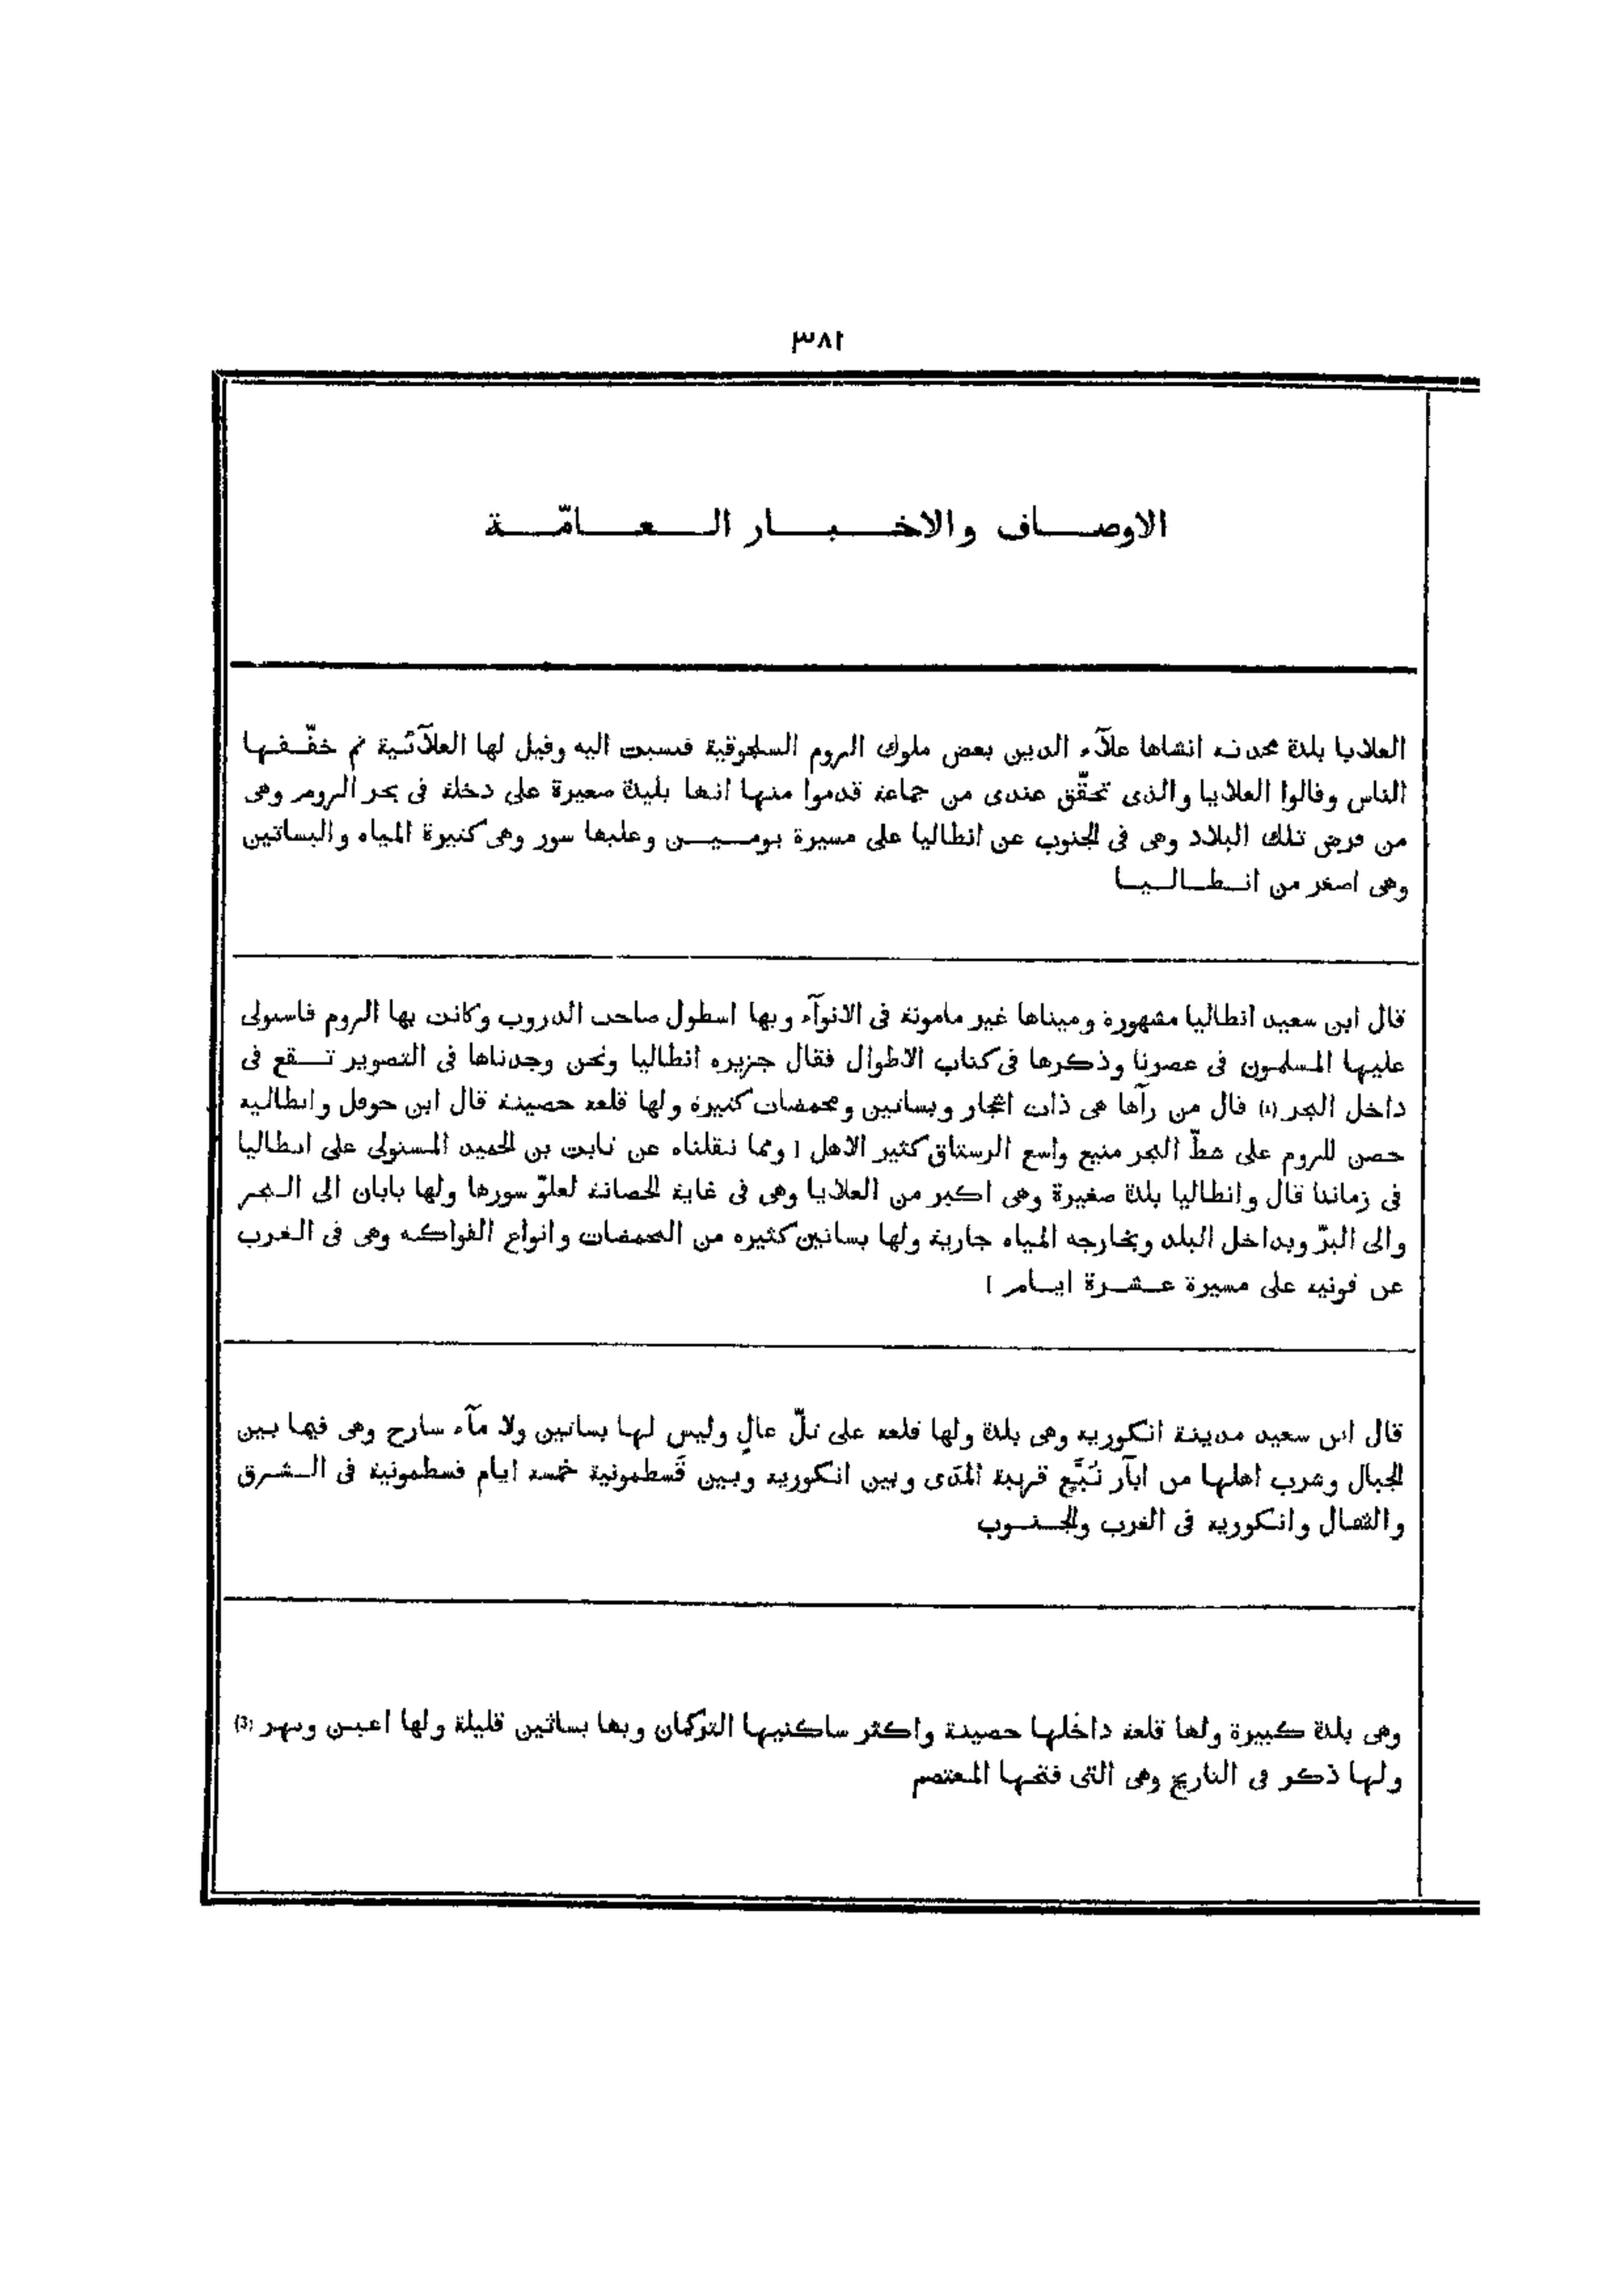 ٣٨١
الاوصاف والاخبار العامّة
العلايا بلدة محدثة انشاها علآء الدين بعض ملوك الروم السلجوقية فنسبت اليه وقيل لها العلآئية ثم خفّفها
الناس وقالوا العلايا والذى تحقّق عندى من جماعة قدموا منها انها بليدة صغيرة على دخلة فى بحر الروم وهى
من فرض تلك البلاد وهى فى الجنوب عن انطاليا على مسيرة يومين وعليها سور وهى كثيرة المياه والبساتين
وهى اصغر من انطاليا
قال ابن سعيد انطاليا مشهورة وميناها غير مامونة فى الانوآء وبها اسطول صاحب الدروب وكانت بها الروم فاستولى
عليها المسلمون فى عصرنا وذكرها فى كتاب الاطوال فقال جزيرة انطاليا ونحن وجدناها فى التصوير تقع فى
داخل البحر (١) قال من رآها هى ذات اشجار وبساتين ومحمضات كثيرة ولها قلعة حصينة قال ابن حوقل وانطالية
حصن للروم على شطّ البحر منيع واسع الرستاق كثير الاهل [ ومما نقلناه عن ثابت بن الحميد المستولى على انطاليا
فى زماننا قال وانطاليا بلدة صغيرة وهى اكبر من العلايا وهى فى غاية الحصانة لعلوّ سورها ولها بابان الى البحر
والى البرّ وبداخل البلد وبخارجه المياه جارية ولها بساتين كثيرة من المحمضات وانواع الفواكه وهى فى الغرب
عن قونية على مسيرة عشرة ايام ]
قال ابن سعيد مدينة انكورية وهى بلدة ولها قلعة على تلّ عالٍ وليس لها بساتين ولا مآء سارح وهى فيما بين
الجبال وشرب اهلها من ابآر نُبَّع قريبة المدى وبين انكورية وبين قَسطمونية خمسة ايام قسطمونية فى الشرق
والشمال وانكورية فى الغرب والجنوب
وهى بلدة كبيرة ولها قلعة داخلها حصينة واكثر ساكنيها التركمان وبها بساتين قليلة ولها اعين ونهر (3)
ولها ذكر فى التاريخ وهى التى فتحها المعتصم